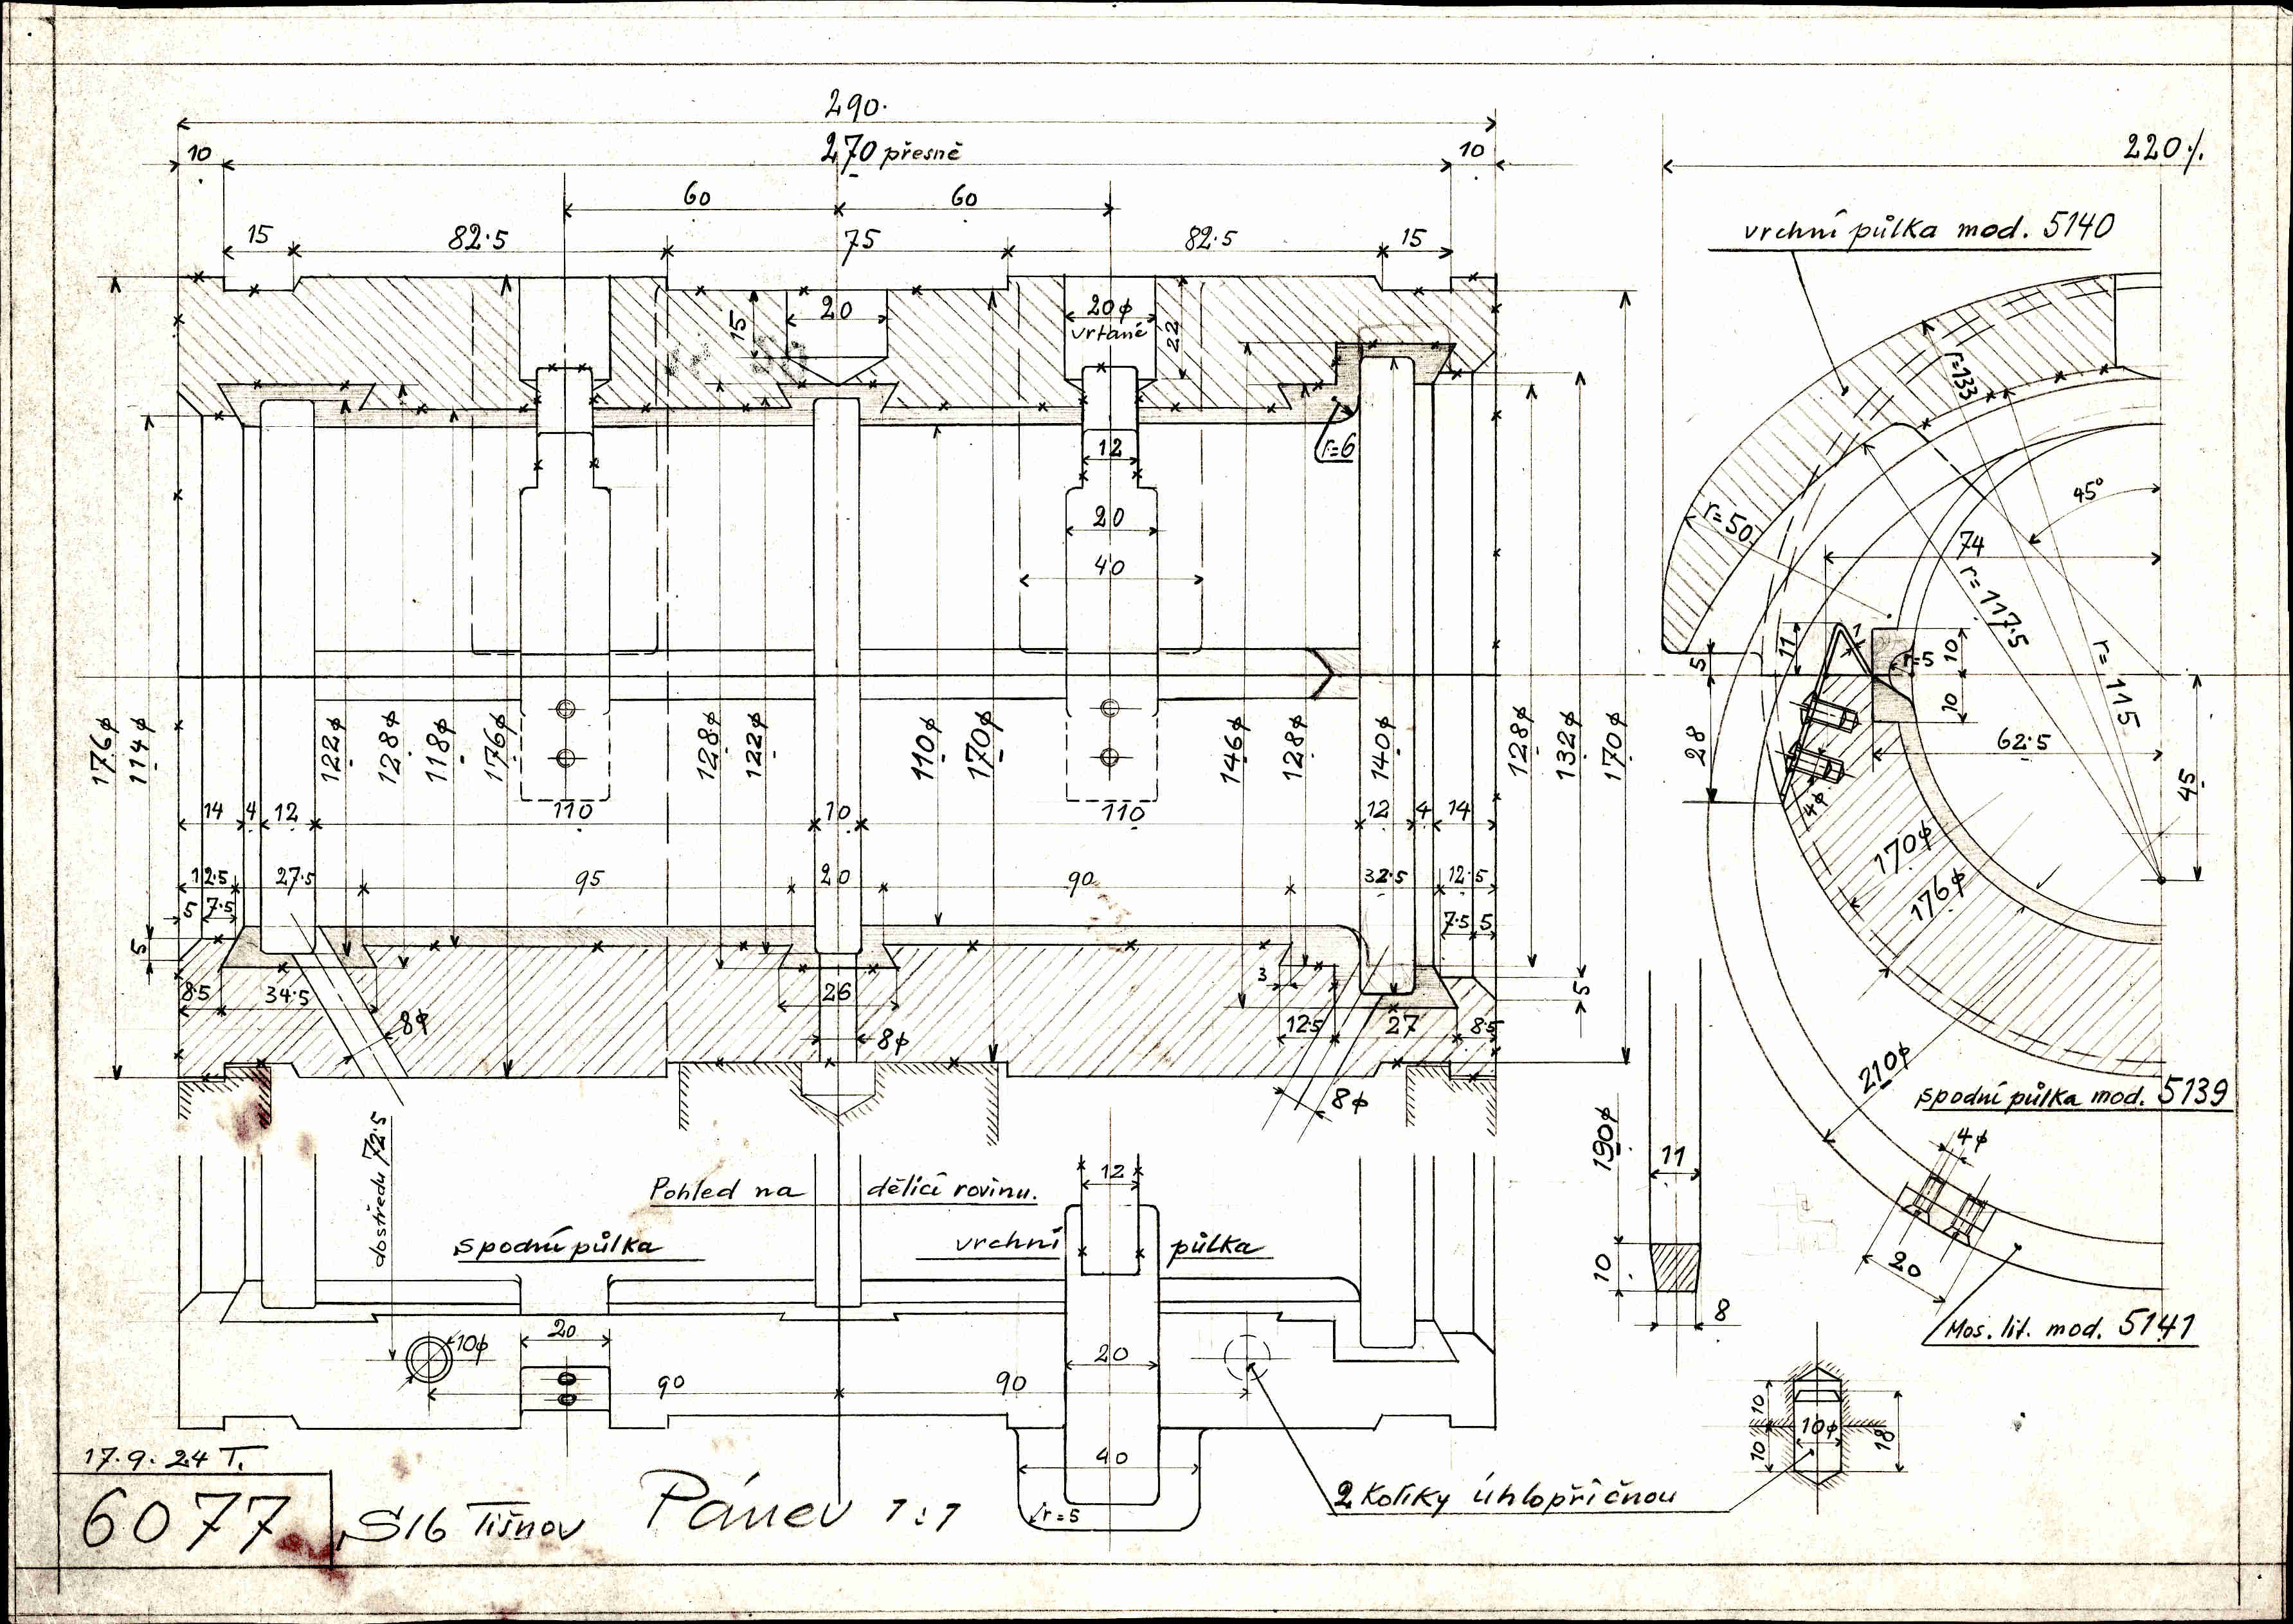 290.
10 270 přesně 10
220⁒
60 60
15 82·5 75 82·5 15
vrchní půlka mod. 5140
15 20 20ϕ 22
vrtané
r=133
r=6
12
45°
20
r=50
74
40
r=117·5
11 1
r=5 10
5
r=115
10
176ϕ 114ϕ 122ϕ 128ϕ 118ϕ 176ϕ 128ϕ 122ϕ 110ϕ 170ϕ 146ϕ 128ϕ 140ϕ 128ϕ 132ϕ 170ϕ
28
62·5
45
4ϕ
14 4 12 110 10 110 12 4 14
170ϕ
12·5 27·5 95 20 90 32·5 12·5
176ϕ
5 7·5 7·5 5
5
8·5 34·5 26 3 5
8ϕ 8ϕ 12·5 27 8·5
210ϕ
8ϕ
spodní půlka mod. 5139
dostředu 72·5
190ϕ
11
4ϕ
Pohled na dělicí rovinu.
12
spodní půlka vrchní půlka
10
20
8
Mos. lit. mod. 5141
10ϕ 20 20
90 90
10 10ϕ 18
10
40
r=5
2 Kolíky úhlopříčnou
17.9.24 T.
6077
S16 Tišnov Pánev 1:1